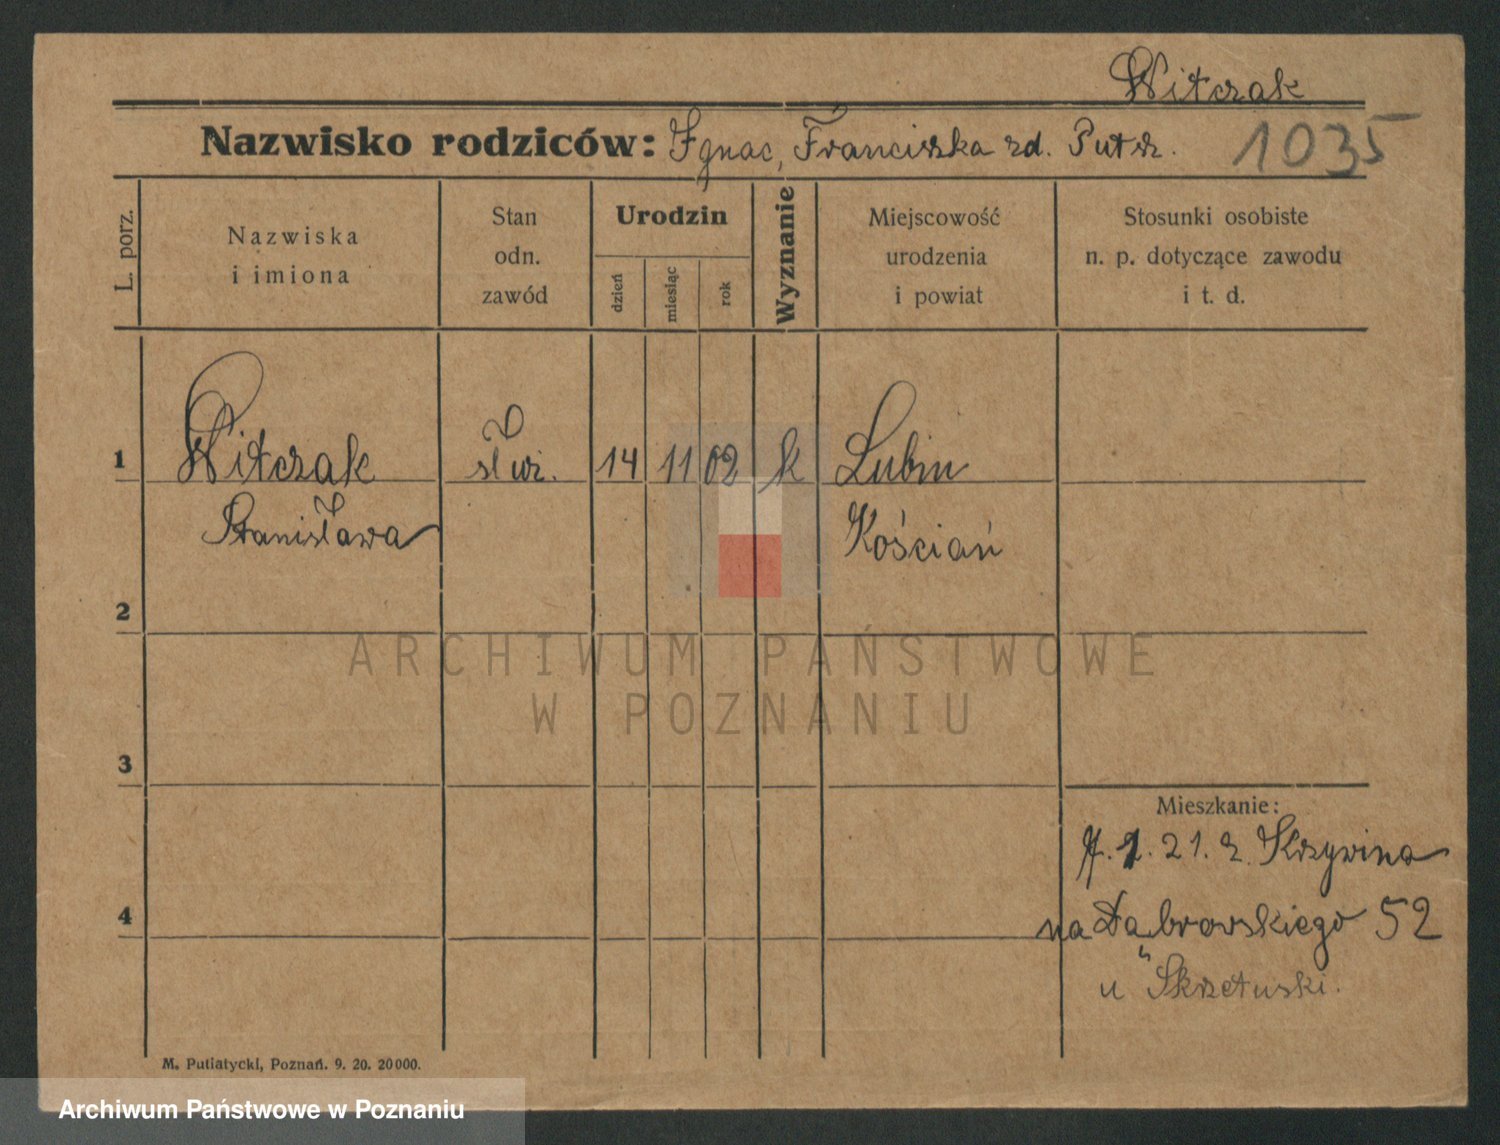 Witczak
Nazwisko rodziców: Ignac, Franciszka zd. Putz.
1035
L. porz.
Nazwiska
i imiona
Stan
odn.
zawód
Urodzin
dzień
miesiąc
rok
Wyznanie
Miejscowość
urodzenia
i powiat
Stosunki osobiste
n. p. dotyczące zawodu
i t. d.
1 Witczak służ. 14 11 02 k Lubiń
Stanisława Kościań
2
ARCHIWUM PAŃSTWOWE
W POZNANIU
3
Mieszkanie:
1. 21. z Krzywina
4
na Dąbrowskiego 52
u Skrzetuski.
M. Putiatycki, Poznań. 9. 20. 20000.
Archiwum Państwowe w Poznaniu